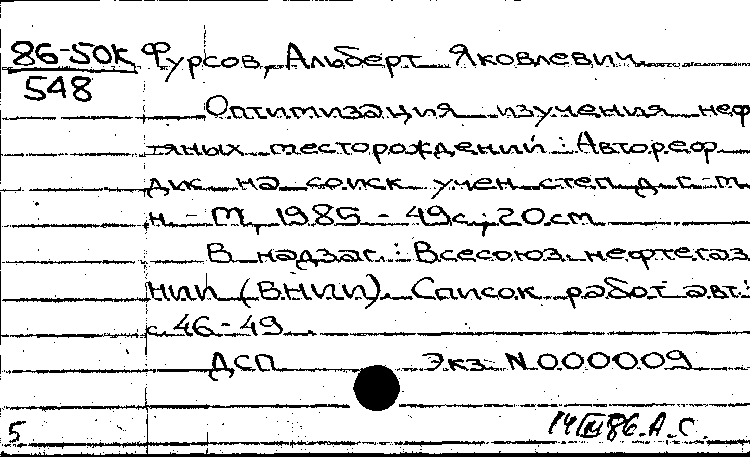 86-50К Фурсов, Альберт Яковлевич.
548
Оптимизация изучения неф
тяных месторождений : Автореф
дис на соиск учен степ д. г.-м
н. - М, 1985 - 49с.; 20см
В надзаг.: Всесоюз. нефтегаз
НИИ (ВНИИ). Список работ авт.:
с. 46-49
ДСП Экз N000009
5 14 III 86. А. С.